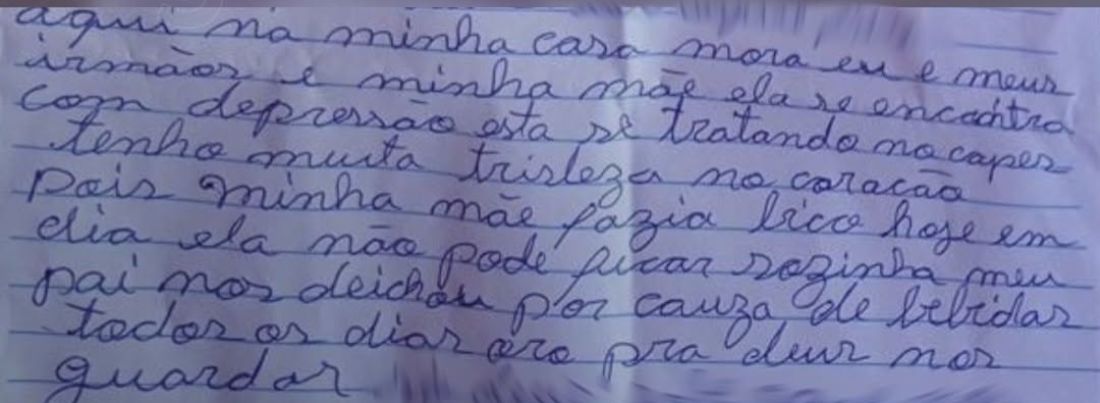 aqui na minha casa mora eu e meus
irmãos e minha mãe ela se encontra
com depressão esta se tratando no capes
tenho muita tristeza no coracão
pois minha mãe fazia bico hoje em
dia ela não pode ficar sozinha meu
pai nos deichou por cauza de bebidas
todos os dias oro pra deus nos
guardar